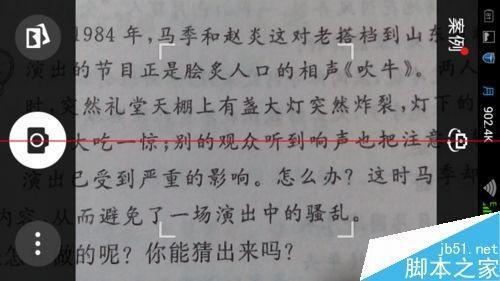 1984年,马季和赵炎这对老搭档到山东
演出的节目正是脍炙人口的相声《吹牛》。两人
时,突然礼堂天棚上有盏大灯突然炸裂,灯下的
大吃一惊;别的观众听到响声也把注意
演出已受到严重的影响。怎么办?这时马季却
内容,从而避免了一场演出中的骚乱。
怎 做的呢?你能猜出来吗?
案例
902.4K
jb51.net
脚本之家